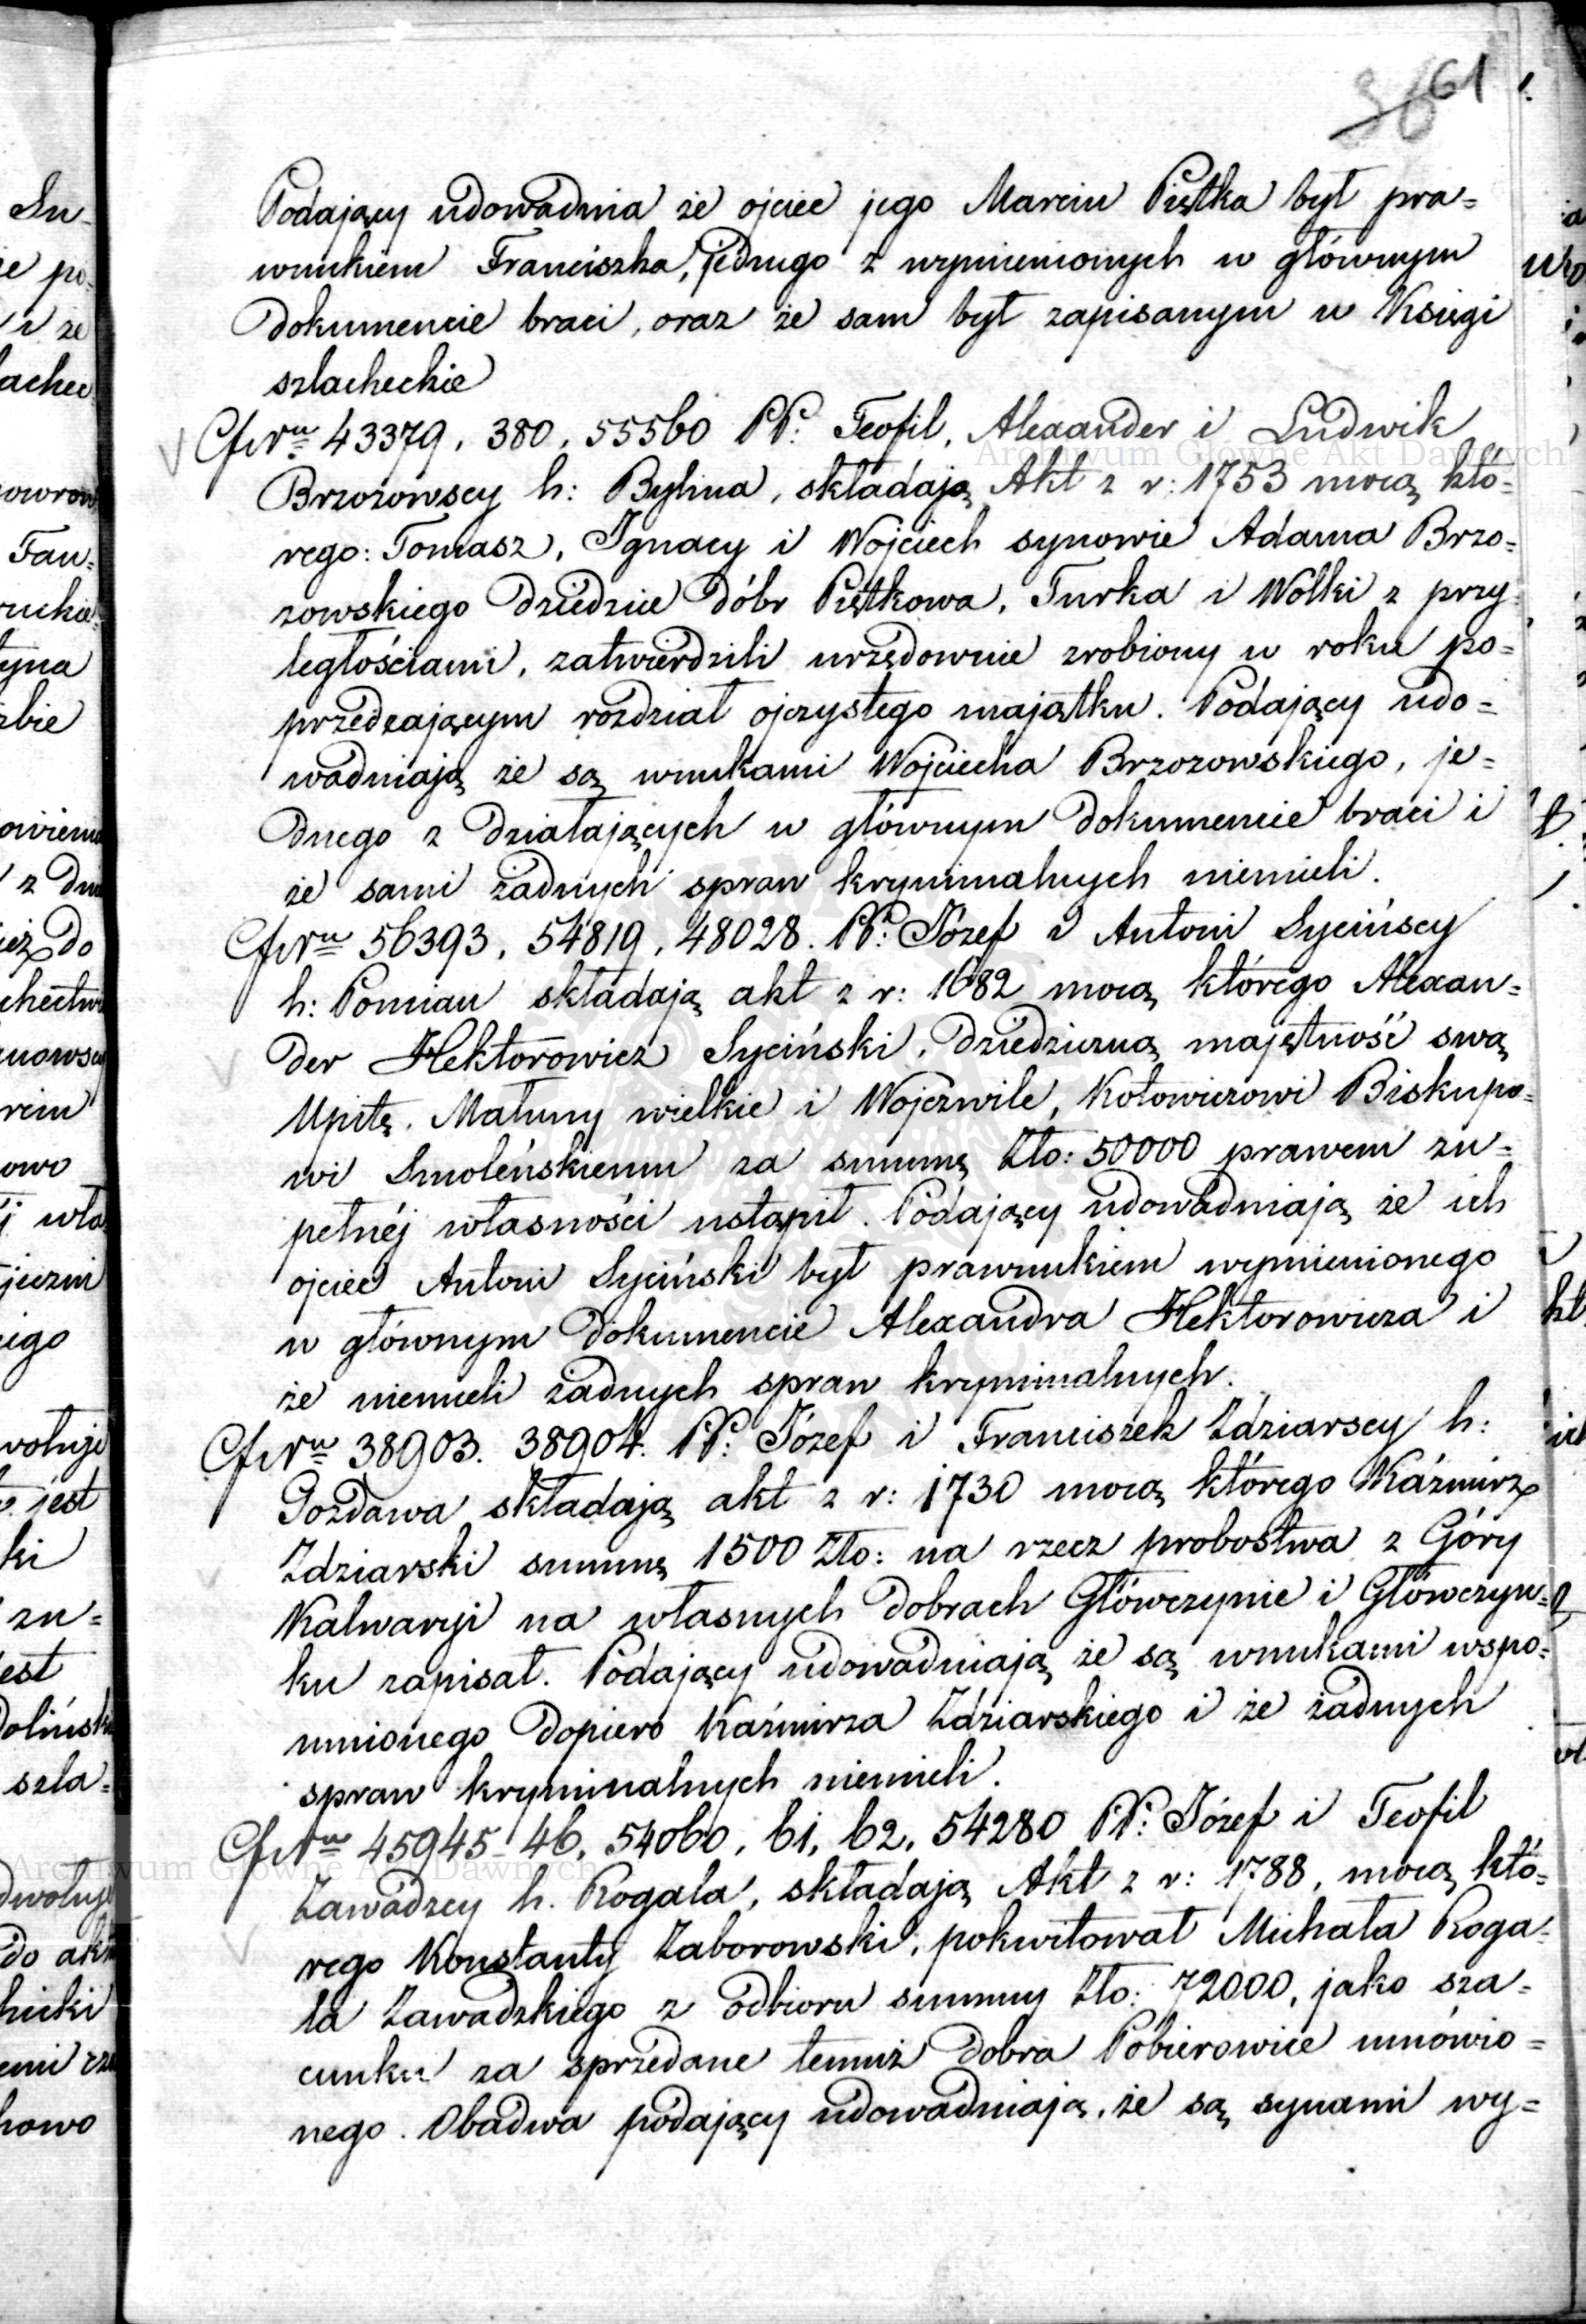 61
Podający udowadnia że ojciec jego Marcin Piętka był pra=
wnukiem Franciszka, jednego z wymienionych w głównym
dokumencie braci, oraz że sam był zapisanym w Księgi
szlacheckie
Nru 43379, 380, 55560 PP: Teofil, Alexander i Ludwik
Brzozowscy h: Bylina, składają Akt z r: 1753 mocą któ=
rego: Tomasz, Ignacy i Wojciech synowie Adama Brzo=
zowskiego dziedzice dóbr Piętkowa, Turka i Wólki z przy=
ległościami, zatwierdzili urzędownie zrobiony w roku po=
przedzającym rozdział ojczystego majątku. Podający udo=
wadniają że są wnukami Wojciecha Brzozowskiego, je=
dnego z działających w głównym dokumencie braci i
że sami żadnych spraw kryminalnych niemieli.
Nru 56393, 54819, 48028. PP: Józef i Antoni Sycińscy
h: Pomian składają akt z r: 1682 mocą którego Alexan=
der Hektorowicz Syciński, dziedziczną majętność swą
Upitę, Matuny wielkie i Wojczwile, Kotowiczowi Biskupo=
wi Smoleńskiemu za summę Zło: 50000 prawem zu=
pełnéj własności ustąpił. Podający udowadniają że ich
ojciec Antoni Syciński był prawnukiem wymienionego
w głównym dokumencie Alexandra Hektorowicza i
że niemieli żadnych spraw kryminalnych.
Nru 38903. 38904. PP: Józef i Franciszek Zdziarscy h:
Gozdawa składają akt z r: 1730 mocą którego Kaźmirz
Zdziarski summę 1500 Zło: na rzecz probostwa z Góry
Kalwaryi na własnych dobrach Główczynie i Główczyn=
ku zapisał. Podający udowadniają że są wnukami wspo=
mnionego dopiero Kaźmirza Zdziarskiego i że żadnych
spraw kryminalnych niemieli.
Nru 45945-46, 54060, 61, 62, 54280 PP: Józef i Teofil
Zawadzcy h. Rogala, składają Akt z r: 1788, mocą któ=
rego Konstanty Zaborowski, pokwitował Michała Roga=
la Zawadzkiego z odbioru summy Zło: 72000, jako sza=
cunku za sprzedane temuż dobra Pobierowice umówio=
nego. Obadwa podający udowadniają, że są synami wy=
Archiwum Główne Akt Dawnych
Archiwum Główne Akt Dawnych